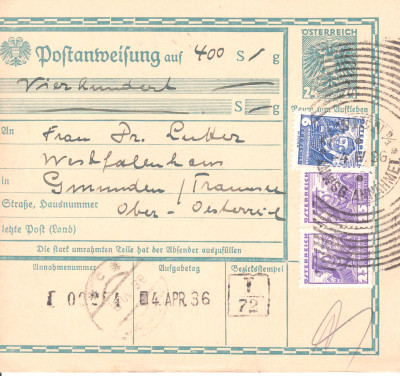 Postanweisung auf 400 S - g
Vierhundert
S - g
ÖSTERREICH
2
Raum zum Aufkleben
An
Frau Dr. Lutter
Westfalenhaus
in
Gmunden / Traunsee
Straße, Hausnummer
Ober-Oesterreich
letzte Post (Land)
Die stark umrahmten Teile hat der Absender auszufüllen
Annahmenummer
Aufgabetag
Bezirksstempel
I 00254
4.APR.36
I
72
ÖSTERREICH
ÖSTERREICH